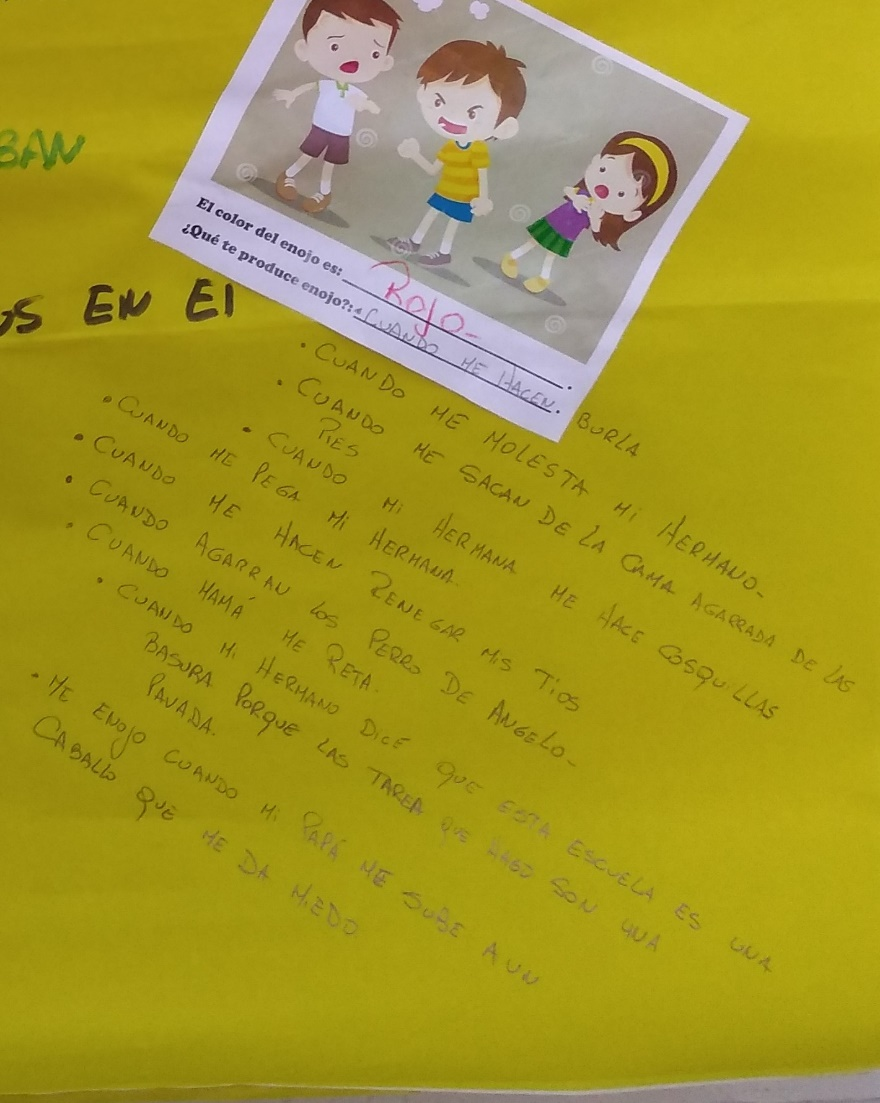 BAN
OS EN EL
El color del enojo es: ROJO-
¿Qué te produce enojo?: • CUANDO ME HACEN BURLA
• CUANDO ME MOLESTA MI HERMANO-
• CUANDO ME SACAN DE LA CAMA AGARRADA DE LAS
PIES
• CUANDO MI HERMANA ME HACE COSQUILLAS
• CUANDO ME PEGA MI HERMANA.
• CUANDO ME HACEN RENEGAR MIS TIOS
• CUANDO AGARRAN LOS PERRO DE ANGELO-
• CUANDO MAMÁ ME RETA.
• CUANDO MI HERMANO DICE QUE ESTA ESCUELA ES UNA
BASURA PORQUE LAS TAREA QUE HAGO SON UNA
PAVADA.
• ME ENOJO CUANDO MI PAPÁ ME SUBE A UN
CABALLO QUE ME DA MIEDO